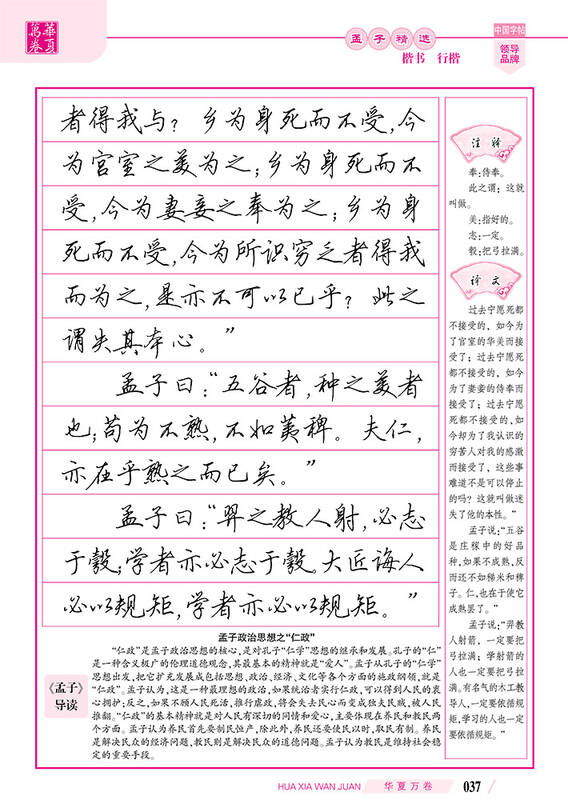 華夏
萬卷
孟子精选
楷书 行楷
中国字帖
领导
品牌
者得我与？乡为身死而不受，今
为宫室之美为之；乡为身死而不
受，今为妻妾之奉为之；乡为身
死而不受，今为所识穷乏者得我
而为之，是亦不可以已乎？此之
谓失其本心。”
孟子曰：“五谷者，种之美者
也；苟为不熟，不如荑稗。夫仁，
亦在乎熟之而已矣。”
孟子曰：“羿之教人射，必志
于彀；学者亦必志于彀。大匠诲人
必以规矩，学者亦必以规矩。”
注释
奉：侍奉。
此之谓：这就
叫做。
美：指好的。
志：一定。
彀：把弓拉满。
译文
过去宁愿死都
不接受的，如今为
了官室的华美而接
受了；过去宁愿死
都不接受的，如今
为了妻妾的侍奉而
接受了；过去宁愿
死都不接受的，如
今却为了我认识的
穷苦人对我的感激
而接受了，这些事
难道不是可以停止
的吗？这就叫做迷
失了他的本性。”
孟子说：“五谷
是庄稼中的好品
种，如果不成熟，反
而还不如稊米和稗
子。仁，也在于使它
成熟罢了。”
孟子说：“羿教
人射箭，一定要把
弓拉满；学射箭的
人也一定要把弓拉
满。有名气的木工教
导人，一定要依循规
矩，学习的人也一定
要依循规矩。”
《孟子》
导读
孟子政治思想之“仁政”
“仁政”是孟子政治思想的核心，是对孔子“仁学”思想的继承和发展。孔子的“仁”
是一种含义极广的伦理道德观念，其最基本的精神就是“爱人”。孟子从孔子的“仁学”
思想出发，把它扩充发展成包括思想、政治、经济、文化等各个方面的施政纲领，就是
“仁政”。孟子认为，这是一种最理想的政治，如果统治者实行仁政，可以得到人民的衷
心拥护；反之，如果不顾人民死活，推行虐政，将会失去民心而变成独夫民贼，被人民
推翻。“仁政”的基本精神就是对人民有深切的同情和爱心，主要体现在养民和教民两
个方面。孟子认为养民首先要制民恒产，除此外，养民还要使民以时，取民有制。养民
是解决民众的经济问题，教民则是解决民众的道德问题。孟子认为教民是维持社会稳
定的重要手段。
HUA XIA WAN JUAN
华夏万卷
037